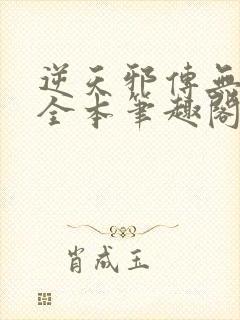 逆天邪傳無
全本筆趣閣
肖成玉